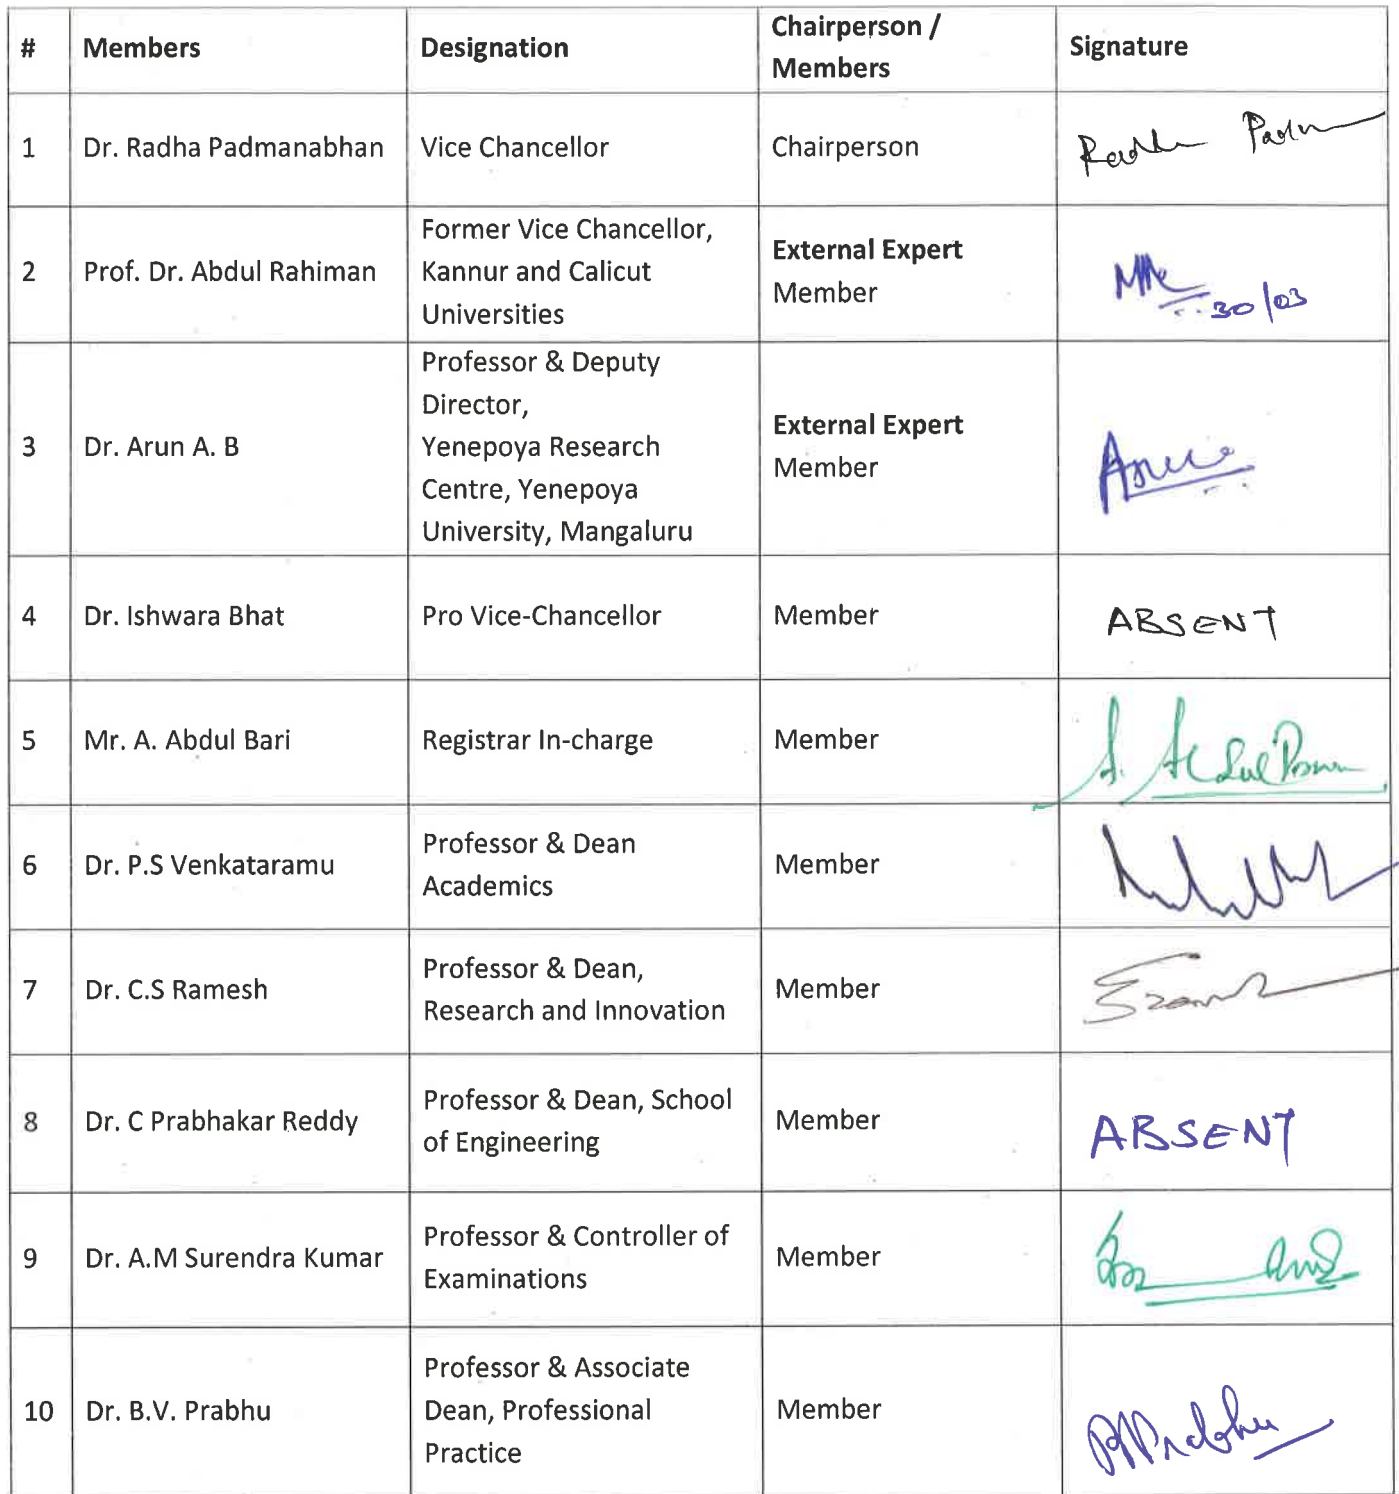 # Members Designation Chairperson / Members Signature
1 Dr. Radha Padmanabhan Vice Chancellor Chairperson Radh Padm
2 Prof. Dr. Abdul Rahiman Former Vice Chancellor, Kannur and Calicut Universities External Expert Member 30/03
3 Dr. Arun A. B Professor & Deputy Director, Yenepoya Research Centre, Yenepoya University, Mangaluru External Expert Member
4 Dr. Ishwara Bhat Pro Vice-Chancellor Member ABSENT
5 Mr. A. Abdul Bari Registrar In-charge Member
6 Dr. P.S Venkataramu Professor & Dean Academics Member
7 Dr. C.S Ramesh Professor & Dean, Research and Innovation Member
8 Dr. C Prabhakar Reddy Professor & Dean, School of Engineering Member ABSENT
9 Dr. A.M Surendra Kumar Professor & Controller of Examinations Member
10 Dr. B.V. Prabhu Professor & Associate Dean, Professional Practice Member